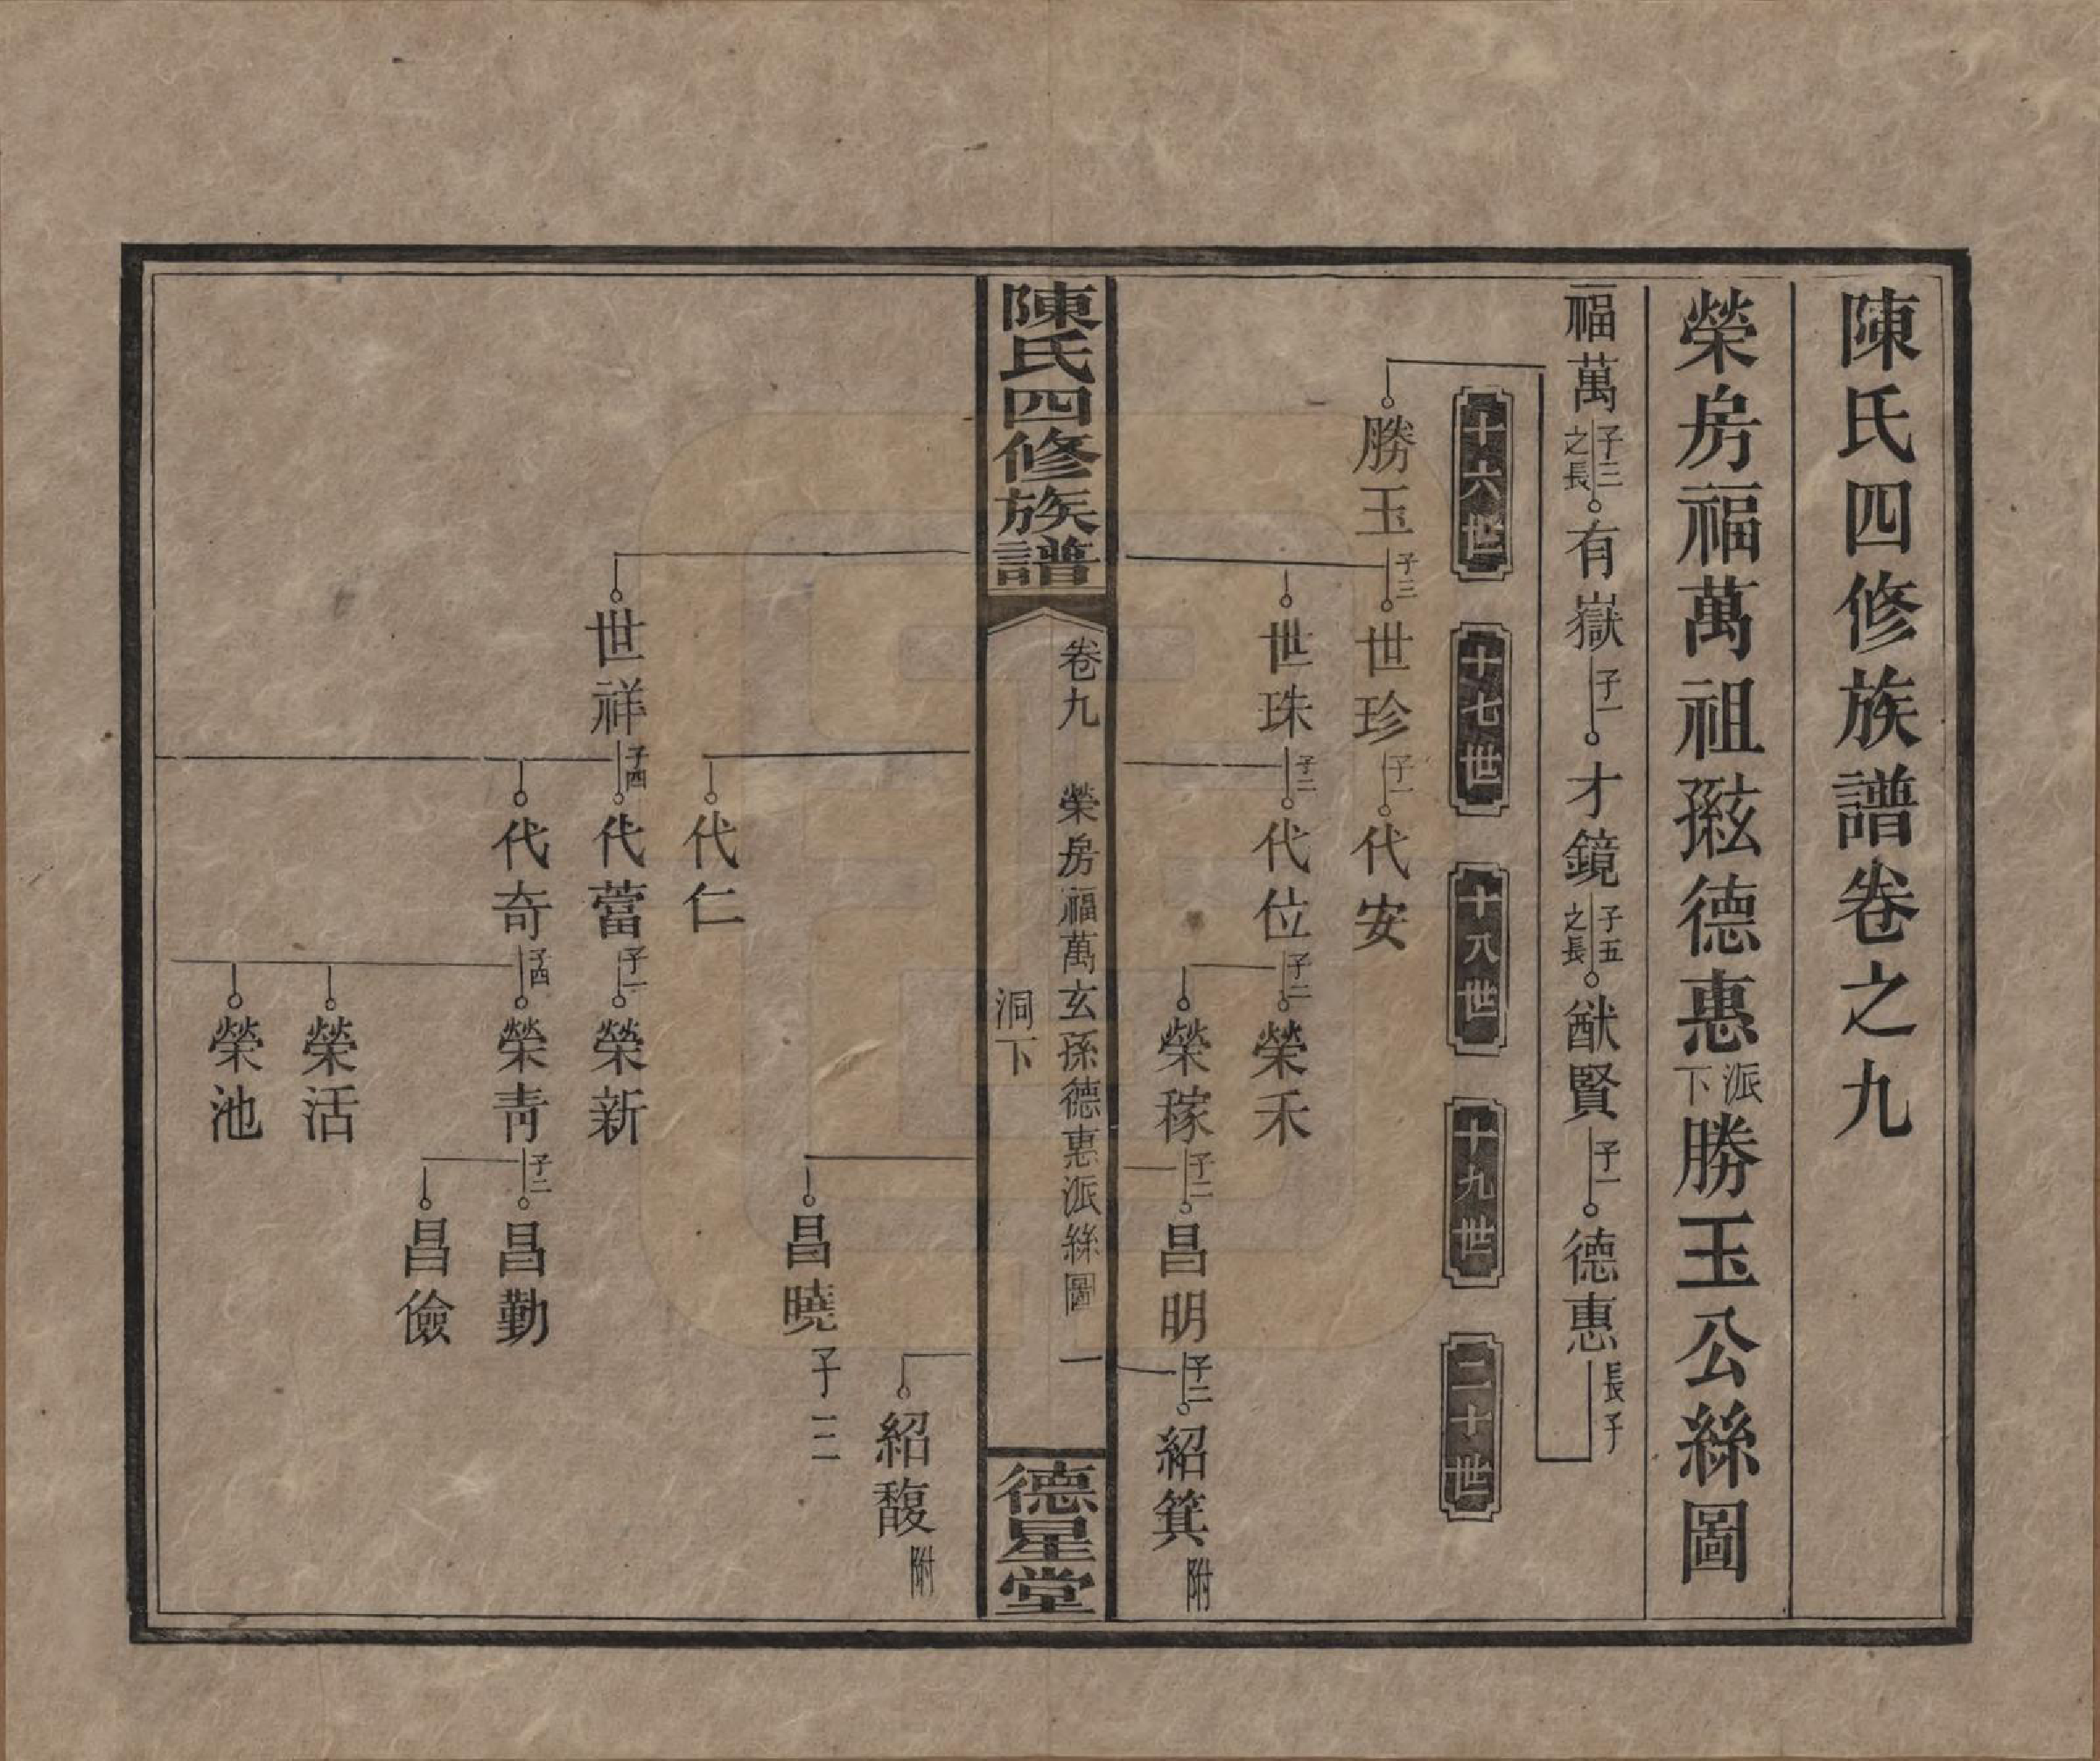 陳氏四修族譜卷之九
榮房福萬祖玅德惠派下勝玉公絲圖
福萬子三之長有嶽子一才鏡子五之長猷賢子一德惠長子
十六世
十七世
十八世
十九世
二十世
勝玉子三世珍子一代安
世珠子二代位子二榮禾
榮稼子二昌明子二紹箕附
陳氏四修族譜
卷九 榮房福萬玄孫德惠派絲圖 一
洞下
德星堂
紹馥附
昌曉子二
代仁
世祥子四代當子一榮新
代奇子四榮青子二昌勤
昌儉
榮活
榮池